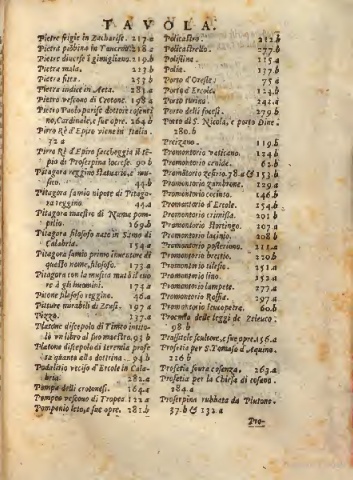 TAVOLA.
Pietre frigie in Zacharise. 217.a
Pietre pebbino in Tauerna. 218.a
Pietre diuerse in gimigliano. 219.b
Pietra mala. 223.b
Pietra fitta. 253.b
Pietra iudice in Aeta. 283.a
Pietro vescouo di Cotrone. 198 a
Pietro Paolo parise dottore cosenti
no, Cardinale, e sue opre. 264 b
Pirro Rè d'Epiro viene in Italia.
32.a
Pirro Rè d'Epiro saccheggia il tē-
pio di Proserpina locrese. 90.b
Pitagora reggino statuario, e mu-
sico. 44.b
Pitagora samio nipote di Pitago-
ra reggino 44.a
Pitagora maestro di Numa pom-
pilio. 169.b
Pitagora filosofo nato in Samo di
Calabria. 154.a
Pitagora samio primo inuentore di
questo nome, filosofo. 173 a
Pitagora con la musica mutò il cuo
re à gli huomini. 174 a
Pitone filosofo reggino. 46.a
Pitture mirabili di Zeusi. 197.a
Pizzo. 137.a
Platone discepolo di Timeo intito-
lò vn libro al suo maestro. 93 b
Platone discepolo di ieremia profe
ta quanto alla dottrina. 94.b
Podalirio vcciso d'Ercole in Cala-
bria. 282.a
Pompa delli crotonesi. 164.a
Pompeo vescouo di Tropea 122.a
Pomponio leto, e sue opre. 281.b
Policastro. 212.b
Policastrello. 277.b
Polistina. 115.a
Polia. 137.b
Porto d'Oreste. 75.a
Porto d'Ercole. 124.b
Porto turino. 242.a
Porto delli focesi. 279.b
Porto di S. Nicola, e porto Dine.
280.b
Preizano. 119.b
Promontorio vaticano. 124.b
Promontorio cenide. 62.b
Promōtorio zefirio. 78.a & 153.b
Promontorio zambrone. 129.a
Promontorio cocinto. 146.b
Promontorio d'Ercole. 254.b
Promontorio crimissa. 202 b
Promontorio Stortingo. 207 a
Promontorio lacinio. 208 b
Promontorio posterione. 211.a
Promontorio brettio. 220.b
Promontorio tilesio. 251.a
Promontorio lino. 252.a
Promontorio lampete. 277.a
Promontorio Rossia. 297 a
Promontorio leucopetra. 60.b
Proemio delle leggi de Zeleuco.
98.b
Prassitele scultore, e sue opre. 56.a
Profetia per S. Tomaso d'Aquino.
116 b
Profetia soura cosenza. 263.a
Profetia per la Chiesa di cosenza.
284.a
Proserpina rubbata da Plutone.
37.b & 132.a
Pro-